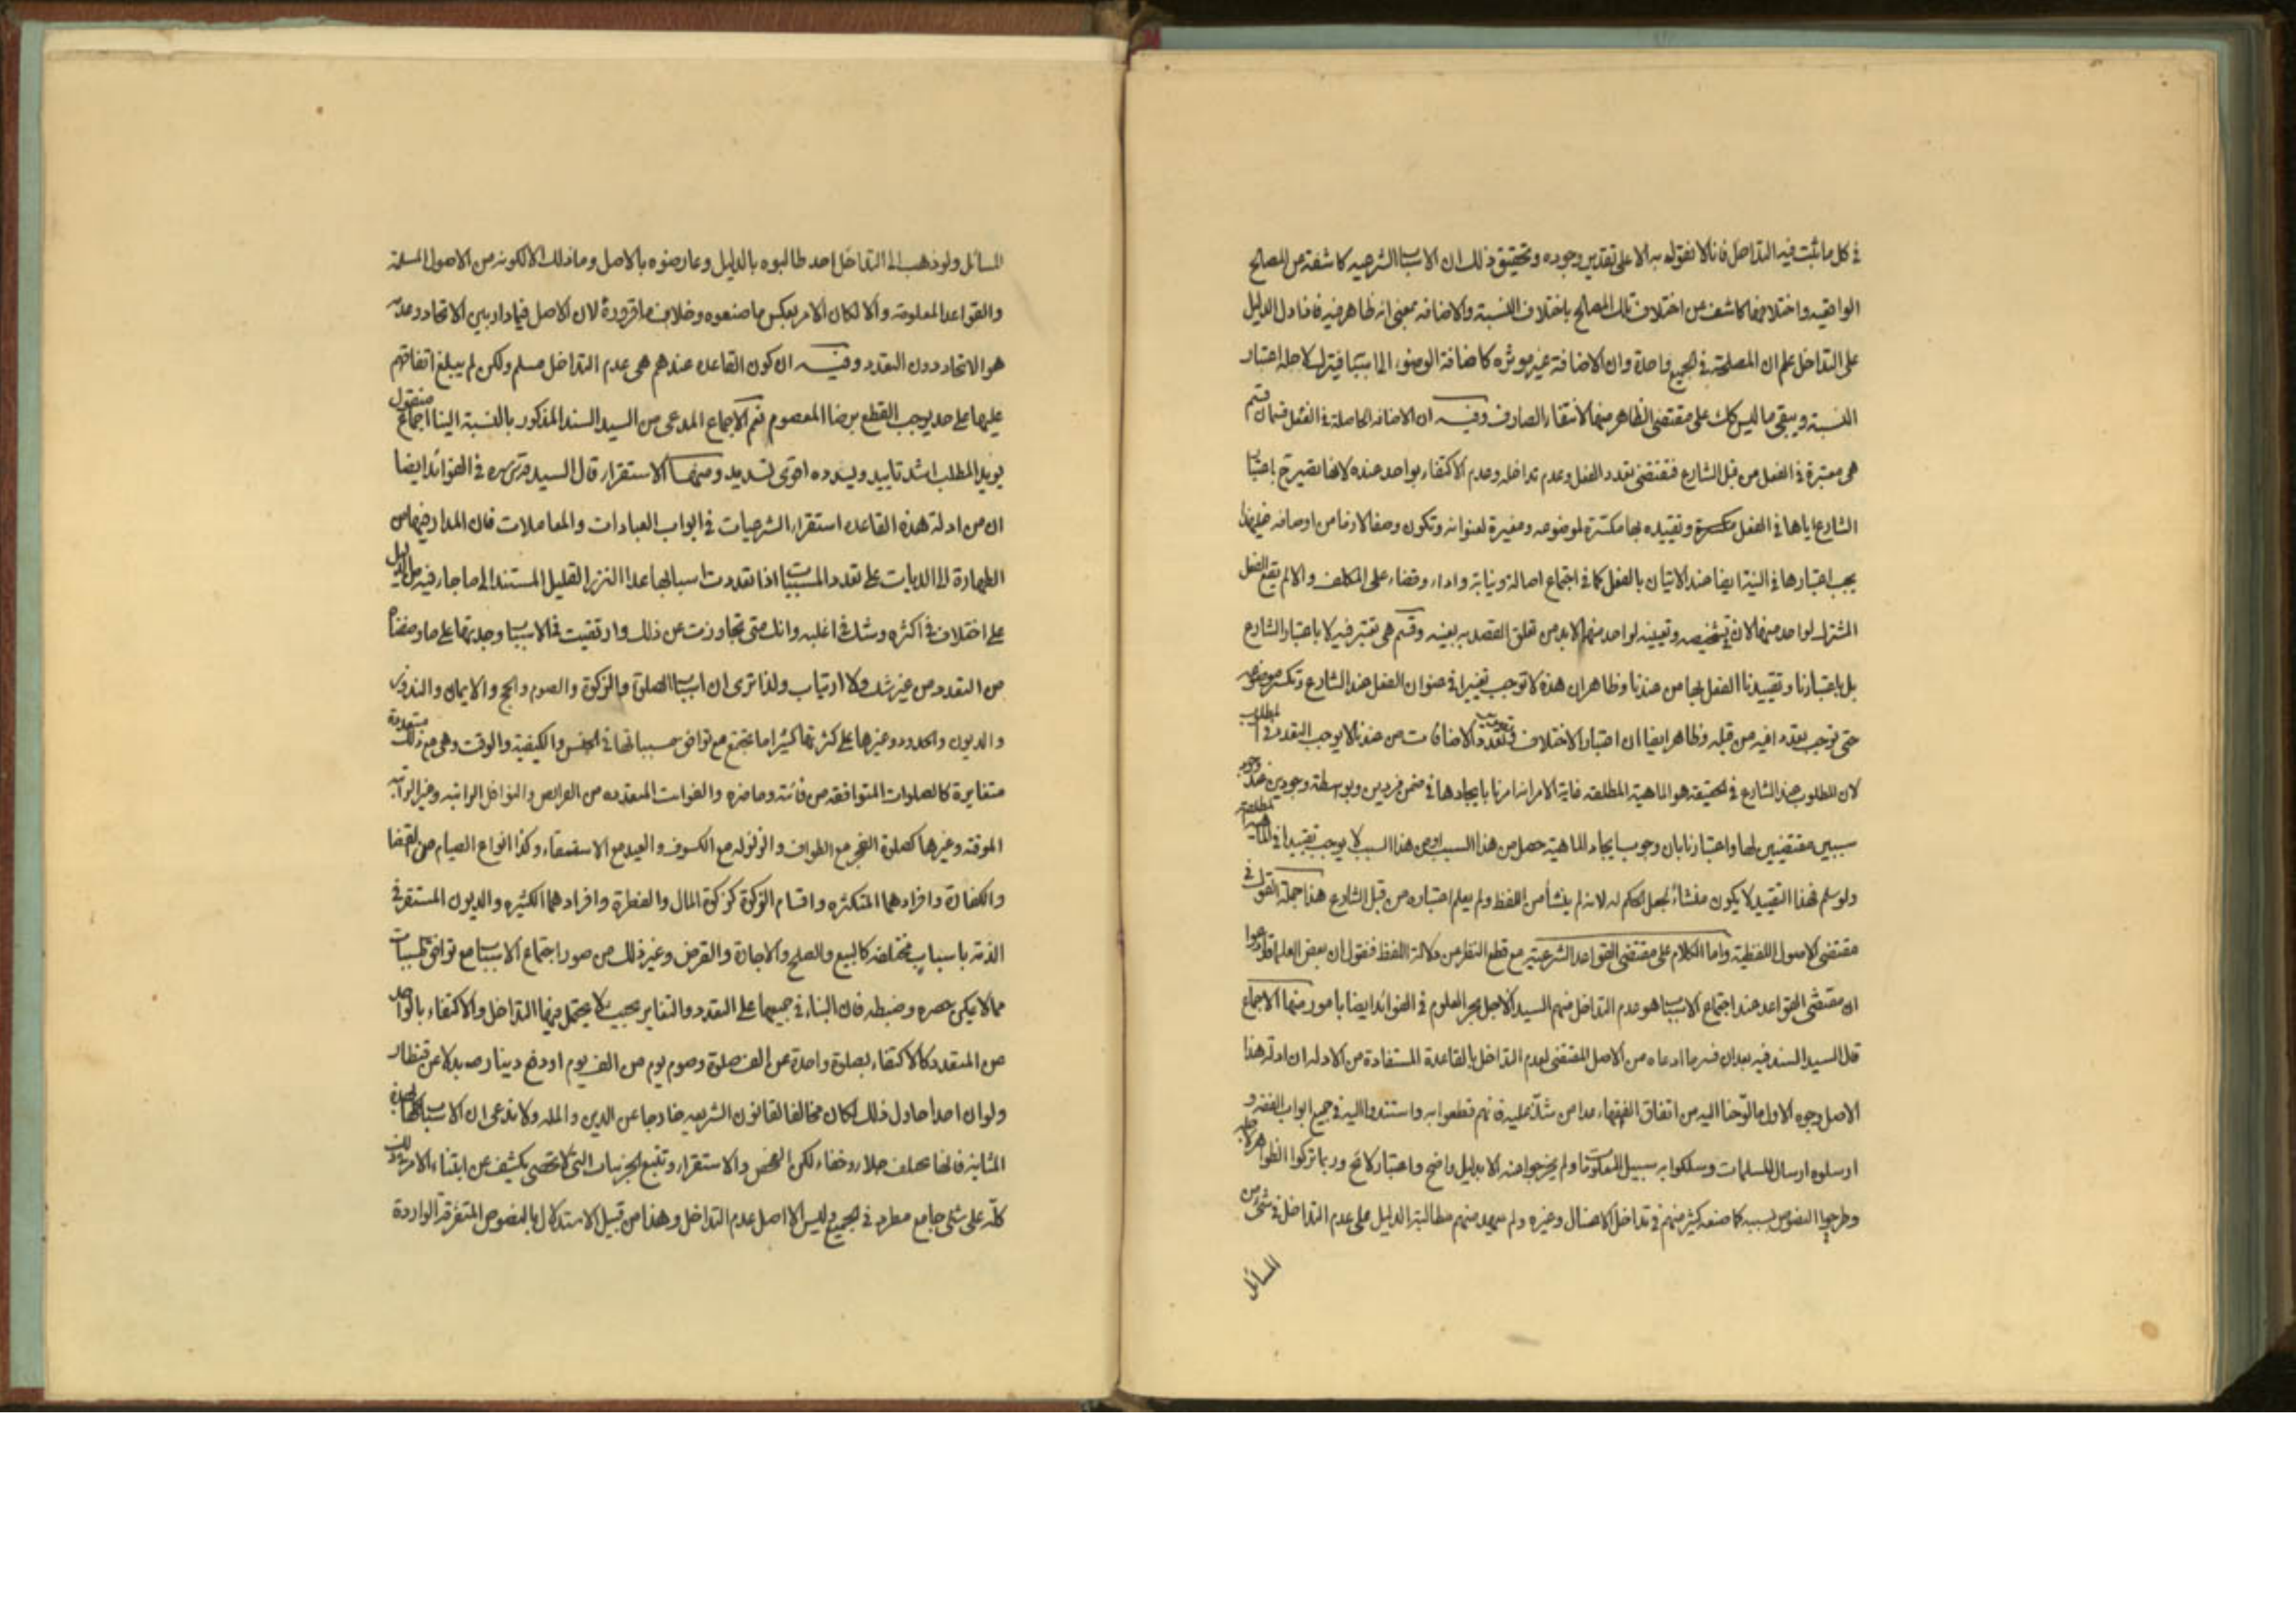 في كل ما ثبت فيه التداخل فانا لا نقول به الا على تقدير وجوده وتحقيق ذلك ان الاسباب الشرعيه كاشفة عن المصالح
الواقعيه واختلافها كاشف عن اختلاف تلك المصالح باختلاف النسبة والاضافه بمعنى انه ظاهر فيه فاذا دل الدليل
على التداخل علم ان المصلحة في الجميع واحدة وان الاضافة غير موثره كاضافة الوضوء الى فيترك لاجله اعتبار
النسبة ويبقى ما ليس كك على مقتضى الظاهر منها لانتفاء الصارف وفيه ان الاضافه الحاصلة في الفعل قسمان قسم
هى معتبرة في الفعل من قبل الشارع فتقتضى تعدد الفعل وعدم تداخله وعدم الاكتفاء بواحد عنده لانها تصير ح باعتبار
الشارع اياها في الفعل وتقييده بها مكثرة لموضوعه ومغيرة لعنوانه وتكون وصفا لازما من اوصافه
يجب اعتبارها في النية ايضا عند الاتيان بالفعل كما في اجتماع اصالة ونيابة واداء وقضاء على المكلف والا لم يقع الفعل
المشترك لواحد منهما لان تشخيصه وتعيينه لواحد منهما لابد من تعلق القصد به بعينه وقسم هى تعتبر فيه لا باعتبار الشارع
بل باعتبارنا وتقييدنا الفعل بها من عندنا وظاهر ان هذه لا توجب تغييرا في عنوان الفعل عند الشارع وتكثر موضوعه
حتى توجب تعددا فيه من قبله وظاهر ايضا ان اعتبار الاختلاف وتعدد الاضافات من عندنا لا يوجب التعدد في المطلوب
لان المطلوب عند الشارع في الحقيقة هو الماهية المطلقه غاية الامر انه امرنا بايجادها في ضمن فردين وبواسطة وجودين
سببين مقتضيين لها واعتبارنا بان وجوب ايجاد الماهية حصل من هذا السبب او من هذا السبب لا يوجب تقييدا في الماهية المطلقة
ولو سلم فهذا التقييد لا يكون منشأ لجعل الحكم له لانه لم ينشأ من اللفظ ولم يعلم اعتباره من قبل الشارع هذا جملة القول في
مقتضى الاصول اللفظيه واما الكلام على مقتضى القواعد الشرعية مع قطع النظر من دلالة اللفظ فنقول ان بعض العلماء قد ادعوا
ان مقتضى القواعد عند اجتماع الاسباب هو عدم التداخل منهم السيد الاجل بحر العلوم في الفوائد ايضا بامور منها الاجماع
قال السيد السند فيه بعد ان فسر ما ادعاه من الاصل المقتضى لعدم التداخل بالقاعدة المستفادة من الادله ان ادلة هذا
الاصل وجوه الاول ما لوحنا اليه من اتفاق الفقهاء عدا من شذ عليه فانهم قطعوا به واستندوا اليه في جميع ابواب الفقه و
ارسلوه ارسال المسلمات وسلكوا به سبيل ولم يخرجوا عنه الا بدليل واضح واعتبار لائح وربما تركوا الظواهر
وطرحوا النصوص بسببه كما صنعه كثير منهم في تداخل الاغسال وغيره ولم يعهد منهم مطالبة الدليل على عدم التداخل في شئ من
المسائل
المسائل ولو ذهب الى التداخل احد طالبوه بالدليل وعارضوه بالاصل وما ذلك الا لكونه من الاصول المسلمة
والقواعد المعلومة والا لكان الامر بعكس ما صنعوه وخلاف ما قرروه لان الاصل فيما دار بين الاتحاد وعدمه
هو الاتحاد دون التعدد وفيه ان كون القاعده عندهم هى عدم التداخل مسلم ولكن لم يبلغ اتفاقهم
عليها على حد يوجب القطع برضا المعصوم نعم الاجماع المدعى من السيد السند المذكور بالنسبة الينا اجماع منقول
يؤيد المطلب اشد تاييد ويسدده اقوى تسديد ومنها الاستقراء قال السيد قدس سره في الفوائد ايضا
ان من ادلة هذه القاعده استقراء الشرعيات في ابواب العبادات والمعاملات فان المدار فيها من
الطهارة الى الديات على تعدد المسببات اذا تعددت اسبابها عدا النزر القليل المستند الى ما جاء فيه من الدليل
على اختلاف في اكثره وشك في اغلبه وانك متى تجاوزت عن ذلك وارتقيت في الاسباب وجدتها على ما وصفنا
من التعدد من غير شك ولا ارتياب ولذا ترى ان اسباب الصلوة والزكوة والصوم والحج والايمان والنذور
والديون والحدود وغيرها على كثرتها كثيرا ما تجتمع مع توافق مسبباتها في الجنس والكيفية والوقت وهى مع ذلك متعددة
متغايرة كالصلوات المتوافقه من فائتة وحاضرة والفوائت المتعدده من الفرائض والنوافل الراتبه وغير الراتبه
الموقته وغيرها كصلوة الفجر مع الطواف والزلزله مع الكسوف والعيد مع الاستسقاء وكذا انواع الصيام من القضا
والكفارة وافرادهما المتكثره واقسام الزكوة كزكوة المال والفطرة وافرادهما الكثيره والديون المستقرة في
الذمة باسباب مختلفه كالبيع والصلح والاجارة والقرض وغير ذلك من صور اجتماع الاسباب مع توافق المسببات
مما لا يمكن حصره وضبطه فان البناء في جميعها على التعدد والتغاير بحيث لا يحتمل فيها التداخل والاكتفاء بالواحد
عن المتعدد كالاكتفاء بصلوة واحدة عن الف صلوة وصوم يوم من الف يوم او دفع دينار بدلا عن قنطار
ولو ان احدا حاول ذلك لكان مخالفا لقانون الشريعه خارجا عن الدين والملة ولا ندعى ان الاسباب كلها بهذه
المثابة فانها تختلف جلاء وخفاء لكن الفحص والاستقراء وتتبع الجزئيات التى لا تحصى يكشف عن ابتناء الامر في ذلك
كله على شئ جامع مطرد في الجميع وليس الا اصل عدم التداخل وهذا من قبيل الاستدلال بالنصوص المتفرقة الواردة